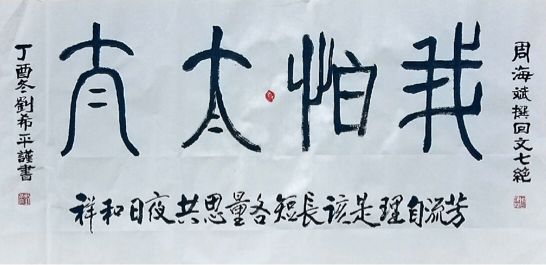 周海斌撰回文七絕
我怕太太
芳流自理是該長短各量思共夜日和祥
丁酉冬劉希平謹書